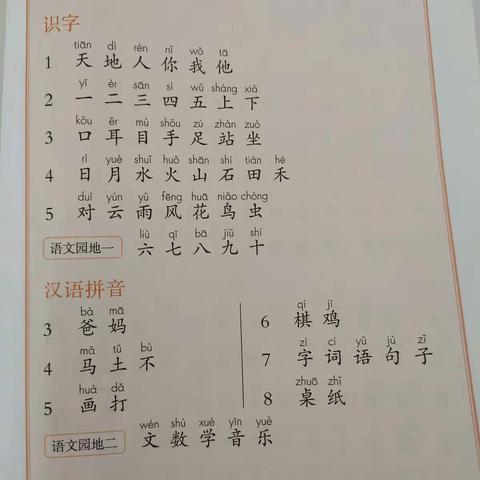 识字
tiān dì rén nǐ wǒ tā
1 天 地 人 你 我 他
yī èr sān sì wǔ shàng xià
2 一 二 三 四 五 上 下
kǒu ěr mù shǒu zú zhàn zuò
3 口 耳 目 手 足 站 坐
rì yuè shuǐ huǒ shān shí tián hé
4 日 月 水 火 山 石 田 禾
duì yún yǔ fēng huā niǎo chóng
5 对 云 雨 风 花 鸟 虫
liù qī bā jiǔ shí
语文园地一 六 七 八 九 十
汉语拼音
bà mā
3 爸 妈
mǎ tǔ bù
4 马 土 不
huà dǎ
5 画 打
qí jī
6 棋 鸡
zì cí yǔ jù zǐ
7 字 词 语 句 子
zhuō zhǐ
8 桌 纸
wén shù xué yīn yuè
语文园地二 文 数 学 音 乐